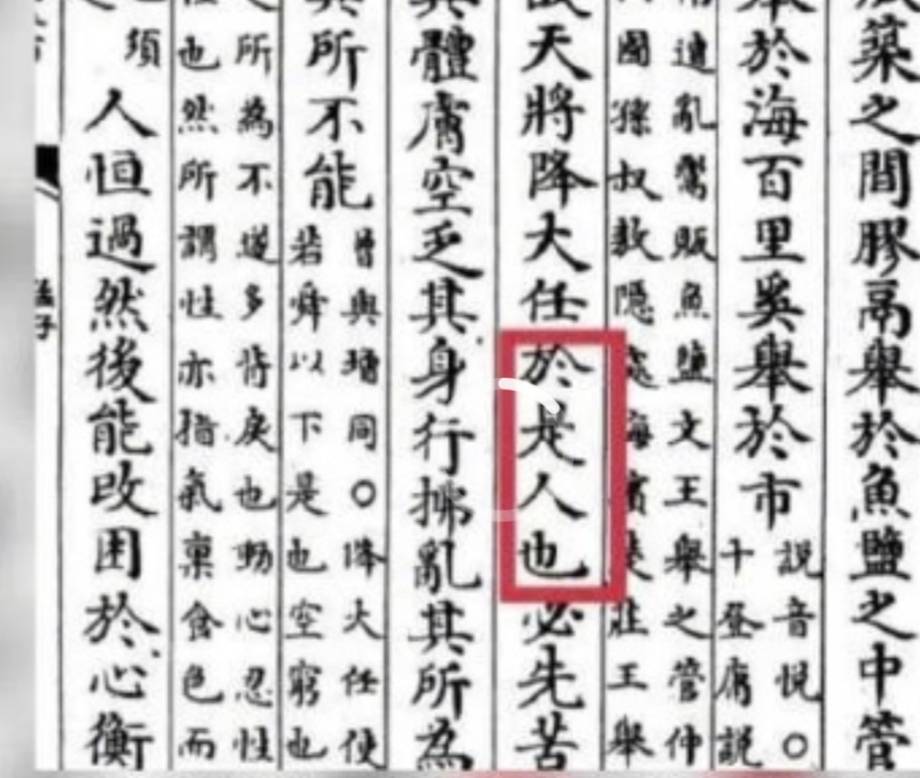 築之間膠高舉於魚鹽之中管
舉於海百里奚舉於市
說音悅○
十登庸說
遭亂鬻販魚鹽文王舉之管仲
國孫叔敖隱處海濱楚莊王舉
天將降大任於是人也必先苦
其體膚空乏其身行拂亂其所為
所不能
曾與增同○降大任使
若舜以下是也空窮也
所為不遂多背戾也動心忍性
也然所謂性亦指氣稟食色而
須
人恒過然後能改困於心衡
孟子